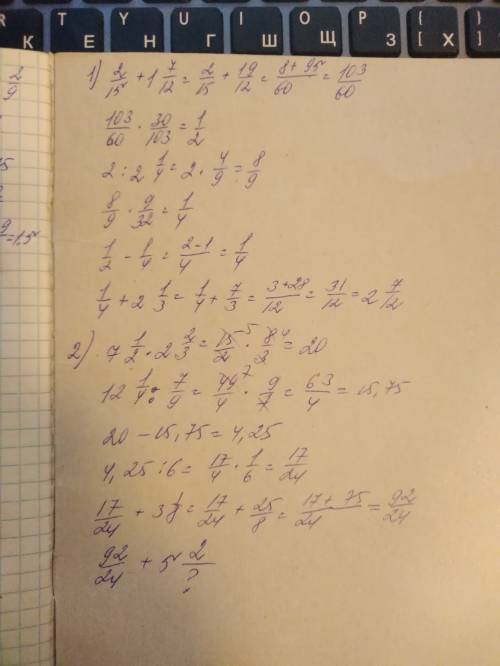 R T Y U I O P {
К Е Н Г Ш Щ З Х
2/9
9/ = 1,5
1) 2/15 + 1 7/12 = 2/15 + 19/12 = 8 + 95/60 = 103/60
103/60 · 30/103 = 1/2
2 : 2 1/4 = 2 · 4/9 = 8/9
8/9 · 9/32 = 1/4
1/2 - 1/4 = 2-1/4 = 1/4
1/4 + 2 1/3 = 1/4 + 7/3 = 3+28/12 = 31/12 = 2 7/12
2) 7 1/2 · 2 2/3 = 15/2 5 · 8/3 4 = 20
12 1/4 : 7/9 = 49/4 7 · 9/7 = 63/4 = 15,75
20 - 15,75 = 4,25
4,25 : 6 = 17/4 · 1/6 = 17/24
17/24 + 3 1/8 = 17/24 + 25/8 = 17 + 75/24 = 92/24
92/24 + 5 2/?